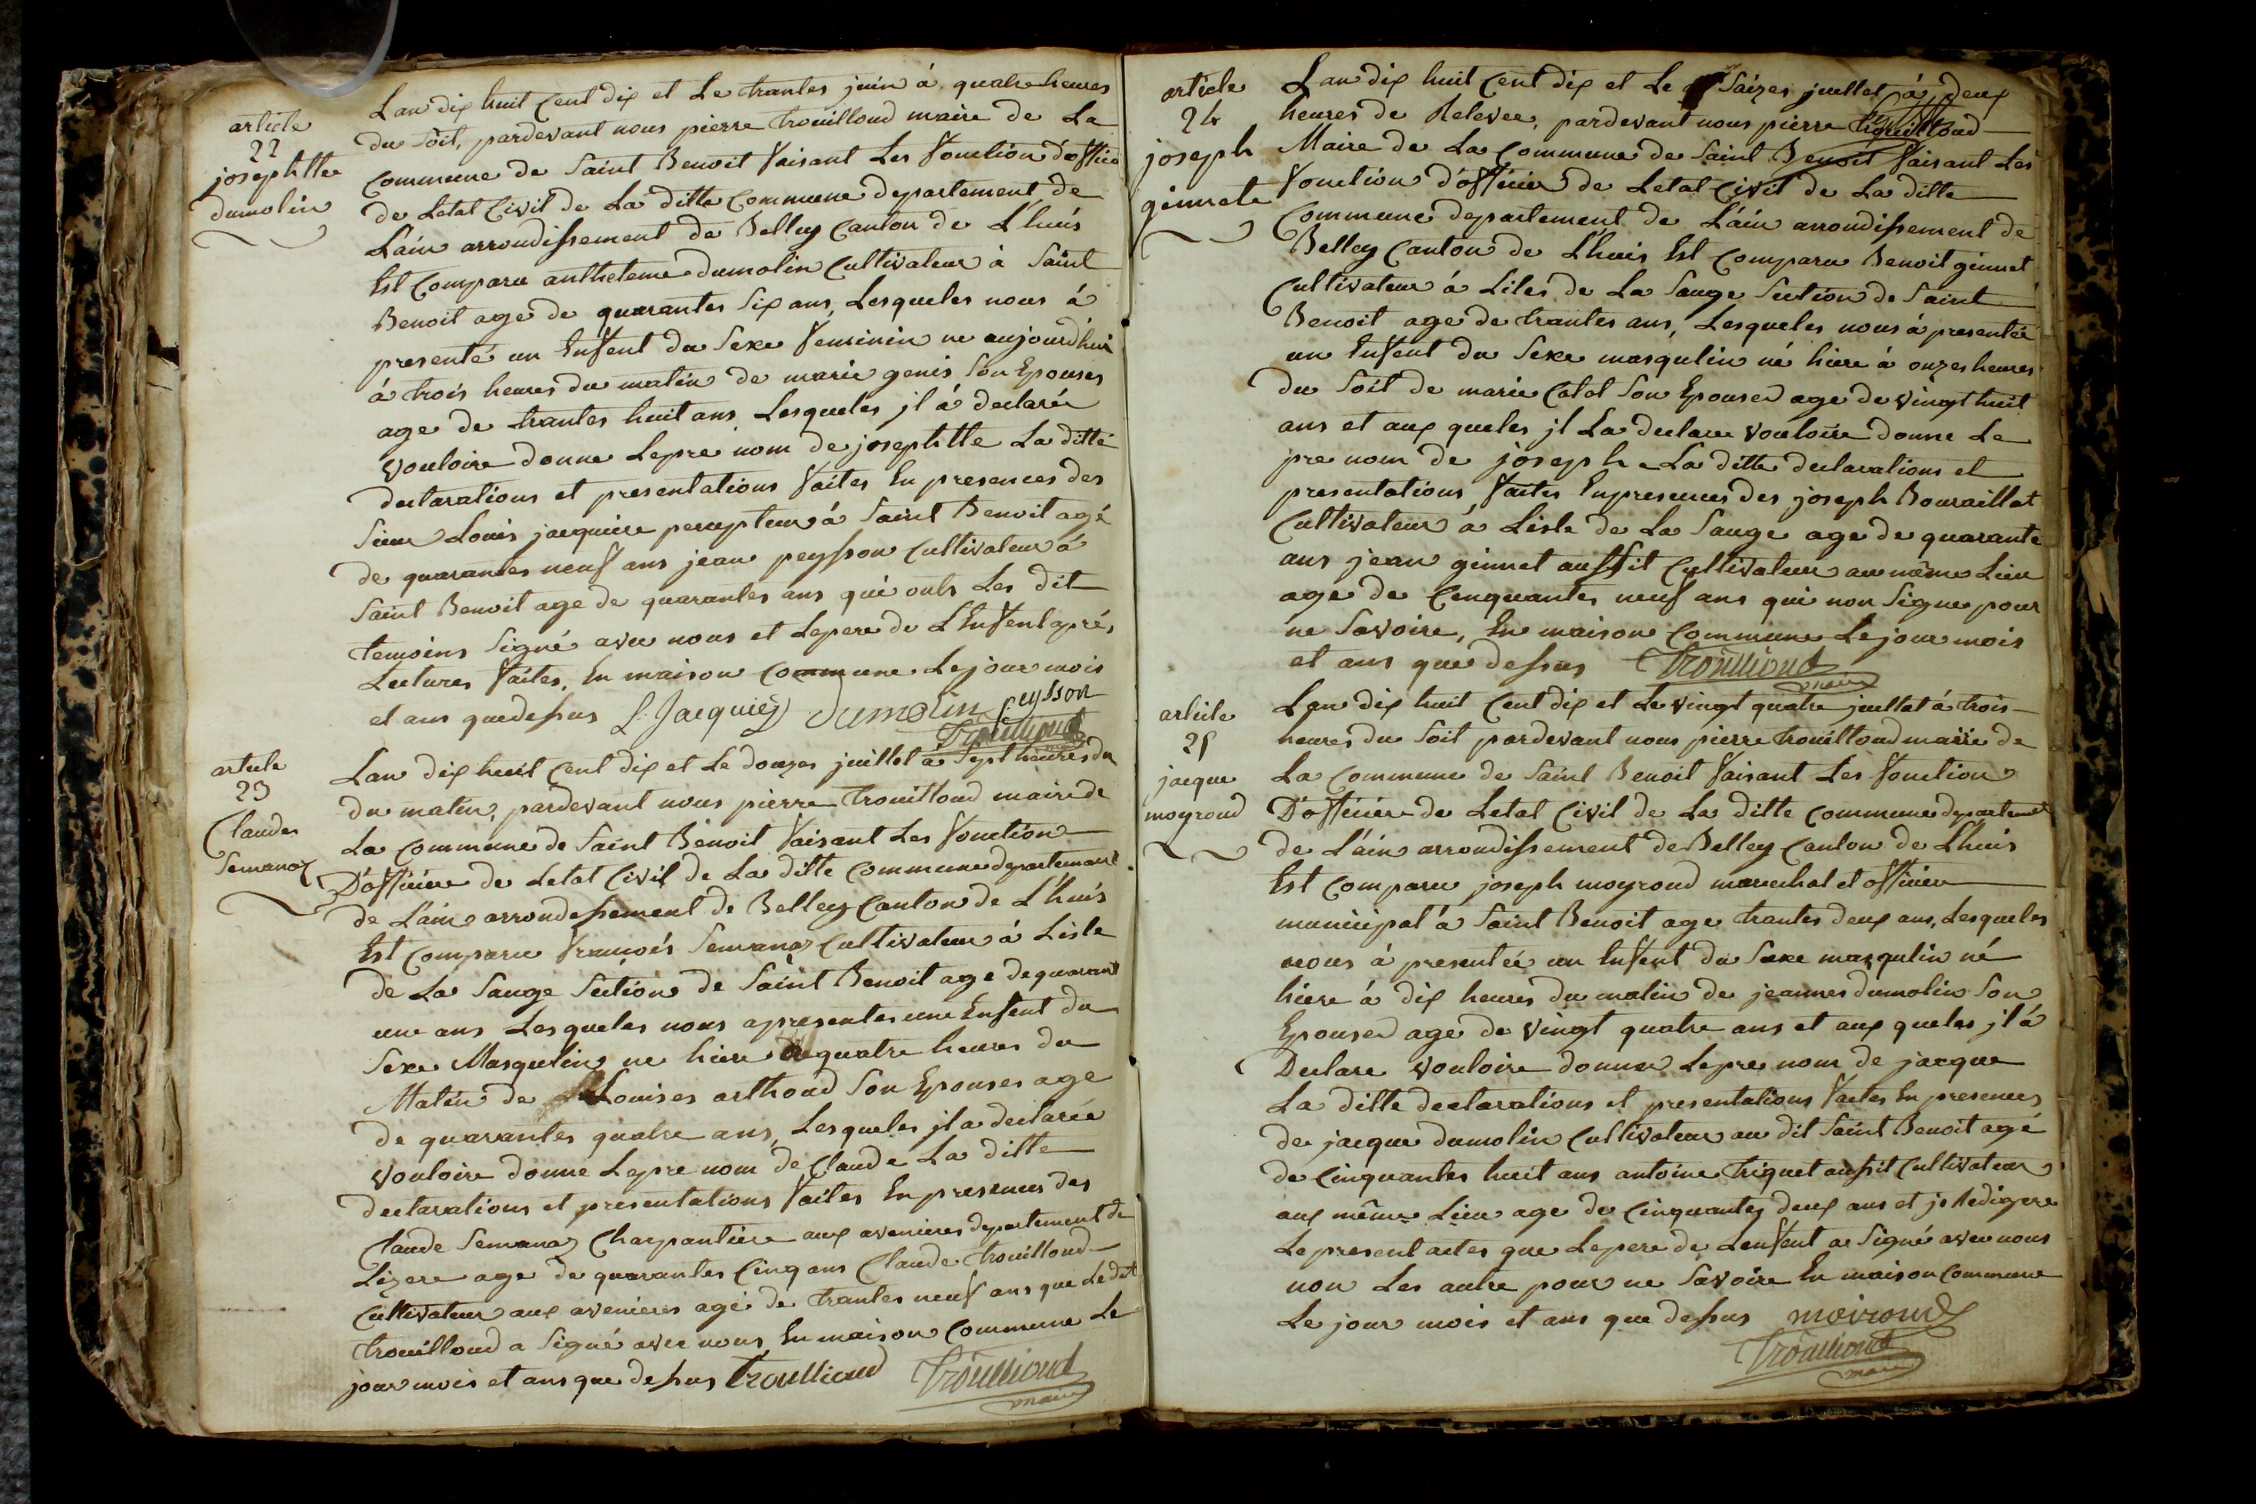 article
22
josephtte
dumolin
Lan dix huit Cent dix et Le trantes juin á quatre heures
du Soit, pardevant nous pierre trouilloud maire de La
Commune de Saint Benoit faisant Les fonction doffice
de Letat Civil de La ditte Commune departement de
Lain arrondissement de Belley Canton de L'huis
Est Comparu antheleme dumolin Cultivateur à Saint
Benoit age de quarantes Six ans, Lesqueles nous á
presenté un Enfent du Sexe feminin ne aujourdhui
á trois heures du matin de marie genis Son Epouses
age de trantes huit ans Lesqueles jl á declarée
vouloire donne Lepre nom de josephtte La ditte
declarations et presentations faites En presences des
Sieur Louis jacquier percepteur á Saint Benoit agé
de quarantes neuf ans jean peysson Cultivateur á
Saint Benoit age de quarantes ans qui onts Les dit
temoins Signé avec nous et Lepere de L'Enfent aprés
Lectures faites, En maison Commune Lejour mois
et ans quedessus L. Jacquier Dumolin Peysson
Trouilloud
maire
article
23
Claudes
Semanaz
Lan dix huit Cent dix et Le douzes juillet á Sept heures du
du matin, pardevant nous pierre trouilloud maire de
La Commune de Saint Benoit faisant Les fonction
D'officier de Letat Civil de La ditte Commune departemant
de Lain arrondessement de Belley Canton de L'huis
Est Comparu francois Semanaz Cultivateur á Lisle
de La Sauge Section de Saint Benoit age de quarant
une ans Lesqueles nous apresentes une Enfent du
Sexe Masqulin ne hiere á quatre heures du
Matin de Louises arthoud Son Epouses age
de quarantes quatre ans, Lesqueles jl a declarée
vouloire donne Lepre nom de Claude La ditte
declarations et presentations faites En presences des
Claude Semanaz Charpantiere aux avenieres departement de
Lizere age de quarantes Cinq ans Claude trouilloud
Cultivateur aux avenieres agé de trantes neuf ans que Ledit
trouilloud a Signé avec nous En maison Commune Le
jour mois et ans que dessus Troullioud Trouilloud
maire
article
24
joseph
ginnete
Lan dix huit Cent dix et Le Saizes juillet á deux
heures de Relevee, pardevant nous pierre trouilloud
Maire de La Commune de Saint Benoit faisant Les
fonction d'officier de Letat Civil de La ditte
Commune departement de L'ain arrondissement de
Belley Canton de L'huis Est Comparu Benoit ginnet
Cultivateur á Liles de La Sauge Section de Saint
Benoit age de trantes ans, Lesqueles nous á presentée
un Enfent du Sexe masqulin né hiere á onzes heures
du Soit de marie Catot Son Epouses age de vingt huit
ans et aux queles jl La declare vouloire donne Le
pre nom de joseph La ditte declarations et
presentations faites Enpresences des joseph Bouraillat
Cultivateur á Lisle de La Sauge age de quarante
ans jean ginnet aussit Cultivateur au même Lieu
age de Cenquantes neuf ans qui non Signe pour
ne Savoire, En maison Commune Le jour mois
et ans que dessus Trouilloud
maire
article
25
jacque
moyroud
Lan dix huit Cent dix et Le vingt quatre juillet á trois
heures du Soit pardevant nous pierre trouilloud maire de
La Commune de Saint Benoit faisant Les fonction
D'officier de Letat Civil de La ditte Commune departement
de L'ain arrondissement de Belley Canton de L'huis
Est Comparu joseph moyroud marechal et officier
municipal á Saint Benoit age trantes deux ans, Lesqueles
nous á presentée un Enfent du Sexe masqulin né
hiere á dix heures du matin de jeannes dumolin Son
Epouses age de vingt quatre ans et aux queles jl á
Declare vouloire donner Lepre nom de jacque
La ditte declarations et presentations faites En presences
de jacque dumolin Cultivateur au dit Saint Benoit agé
de Cinquantes huit ans antoine triquet aussit Cultivateur
aux même Lieu age de Cinquantes deux ans et je Redigere
Le present actes que Lepere de Lenfent a Signé avec nous
non Les autre pour ne Savoire En maison Commune
Le jour mois et ans que dessus moiroud
Trouilloud
maire